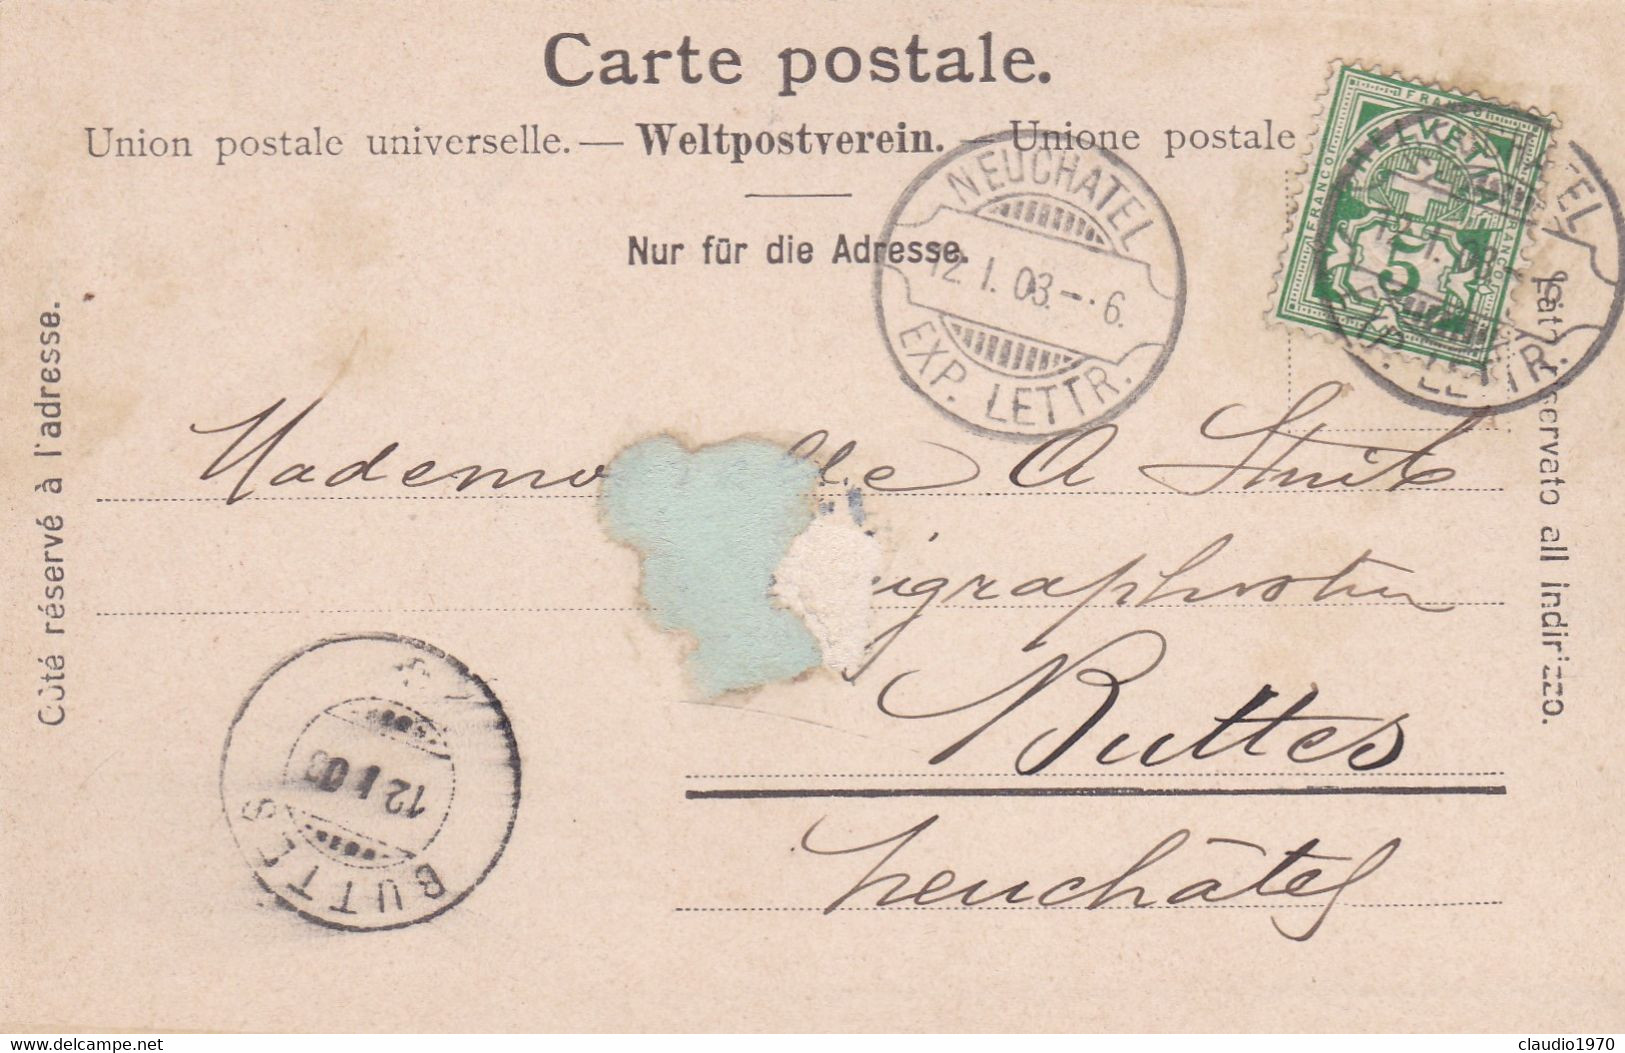 Carte postale.
Union postale universelle. — Weltpostverein. — Unione postale
Nur für die Adresse.
Côté réservé à l'adresse.
Lato riservato all indirizzo.
NEUCHATEL
12. I. 03. – 6.
EXP. LETTR.
FRANCO
HELVETIA
FRANCO
FRANCO
5
TEL
12. I. 03
LETTR.
Mademo lle A
igraph
Buttes
Neuchâtel
BUTTES
12 I 03
delcampe.net
claudio1970